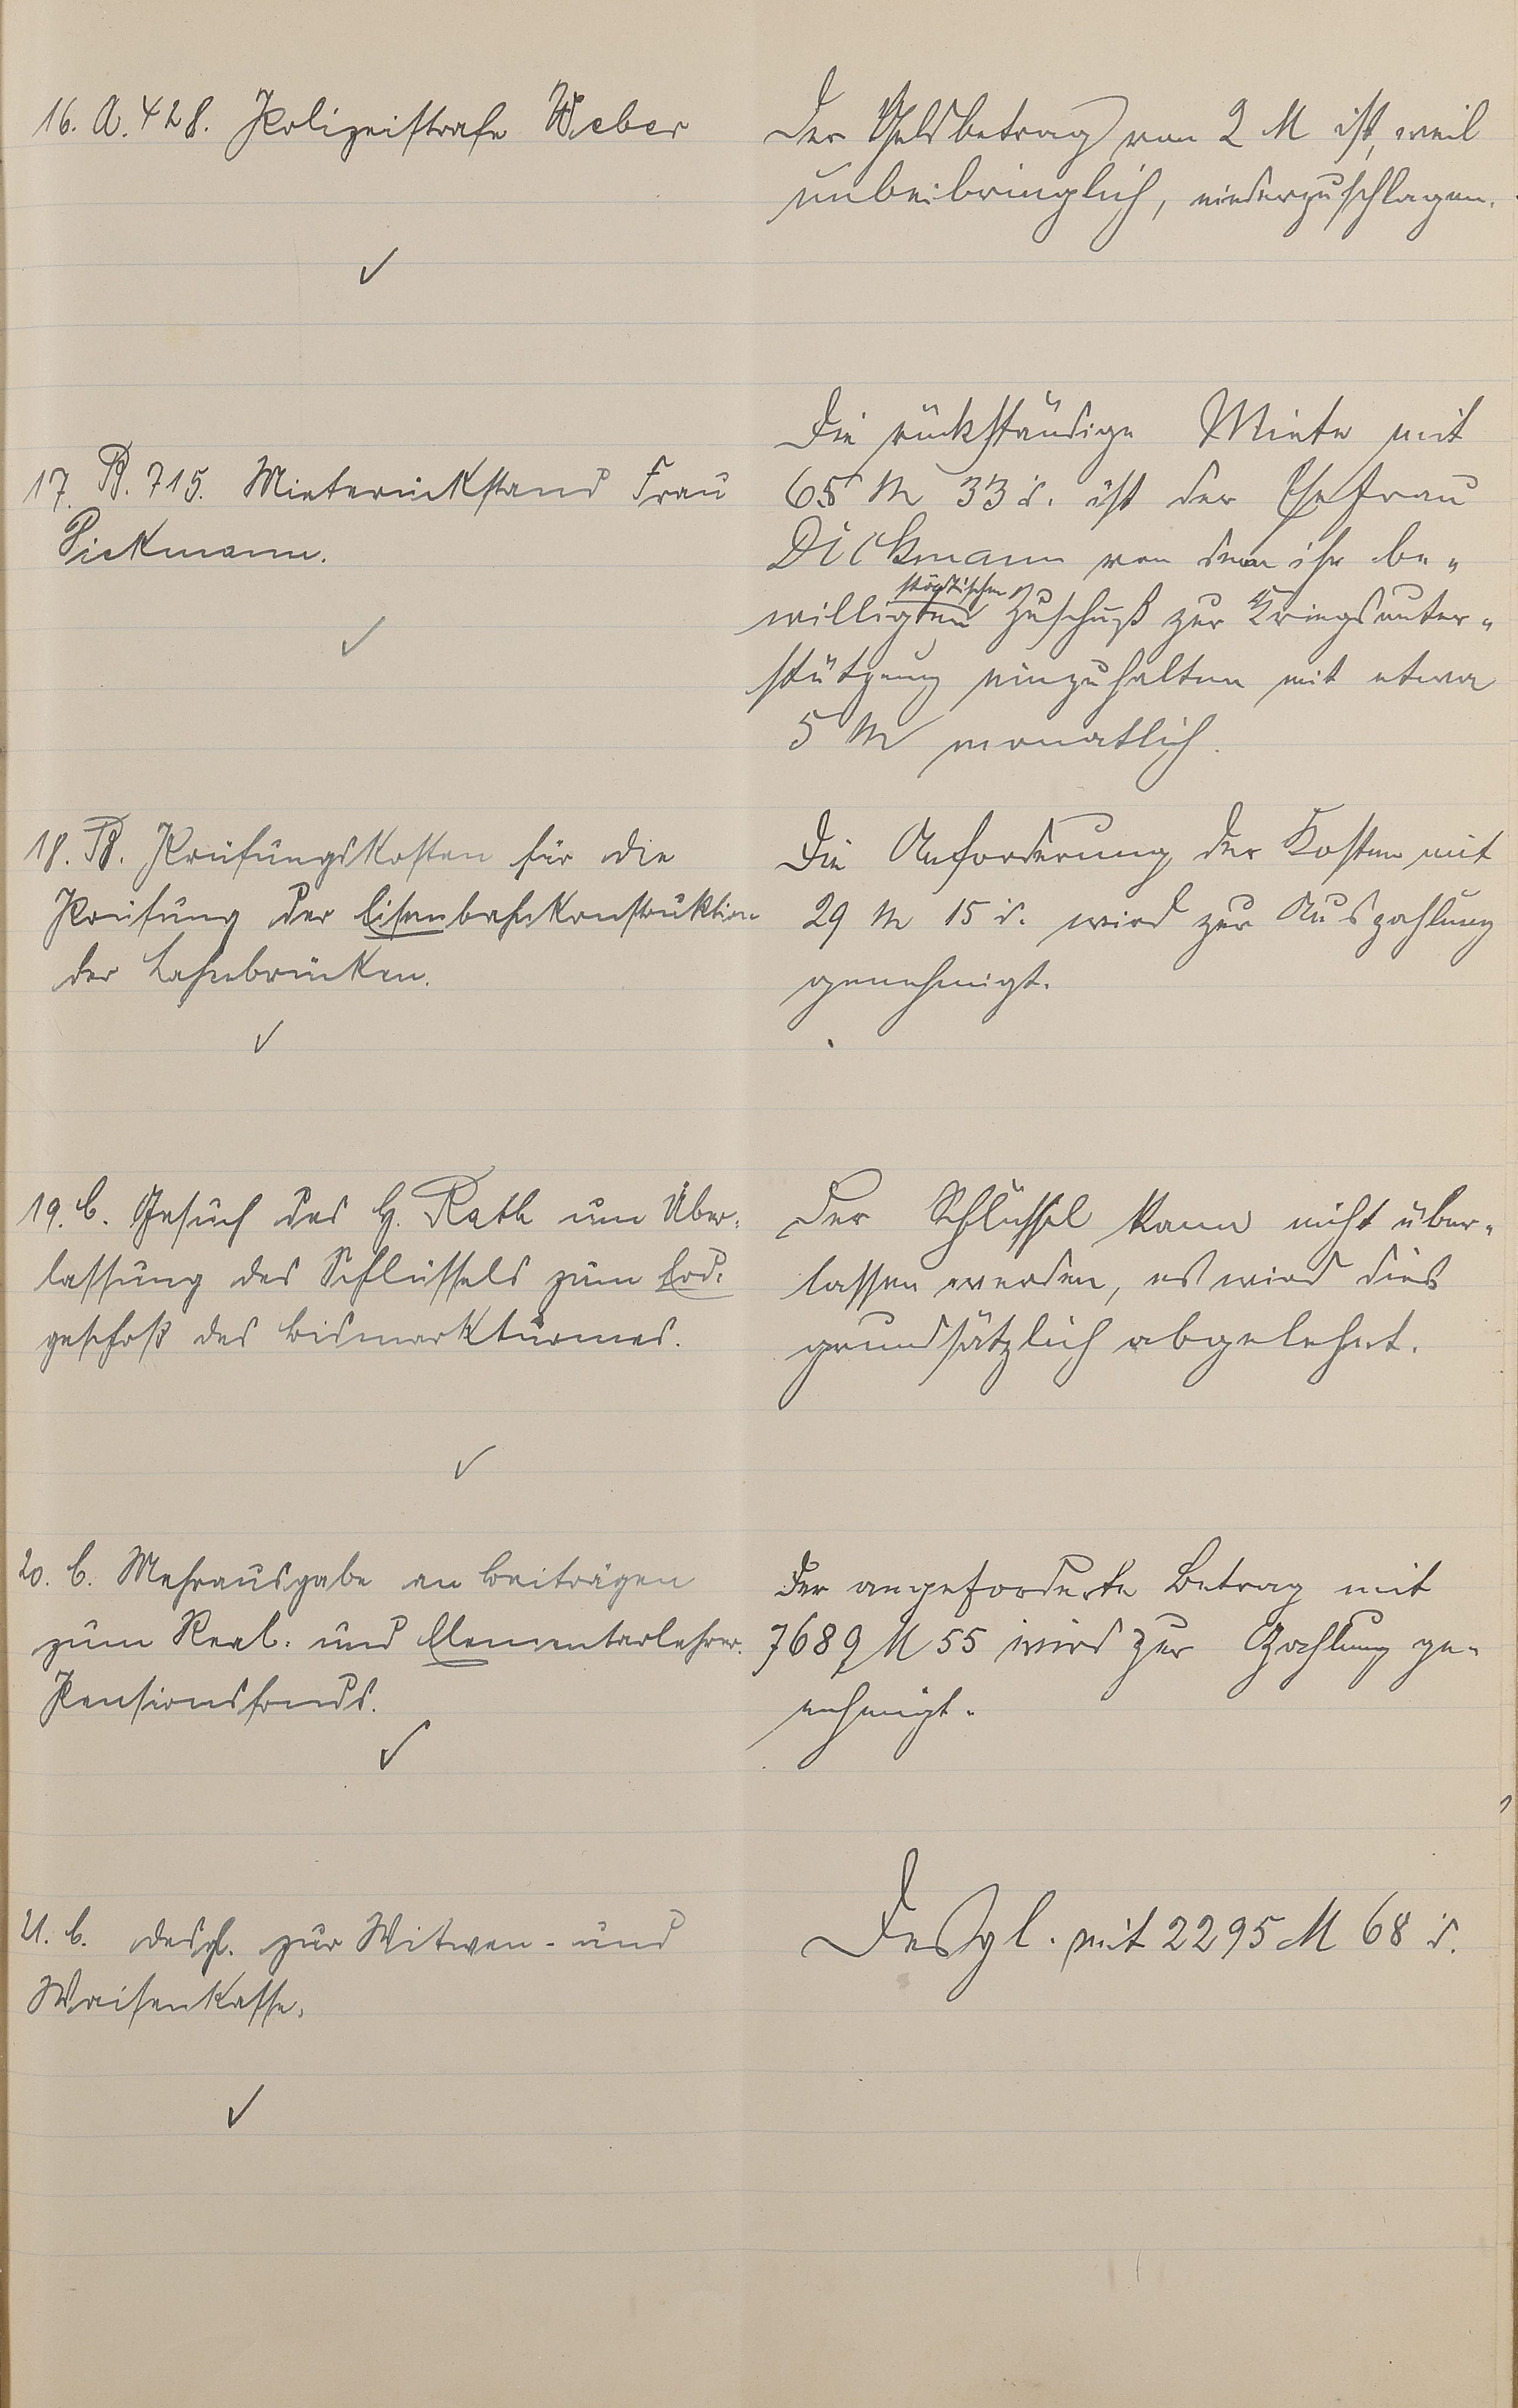 16. A. 428. Polizeistrafe Weber
Der Geldbetrag von 2 M ist, weil
unbeibringlich, niederzuschlagen.
17. B. 715. Mieterückstand Frau
Dickmann.
Die rückständige Miete mit
65 M 33 d. ist der Ehefrau
Dickmann von dem ihr be-
städtischen
willigten Zuschuß zur Kriegsunter-
stützung einzuhalten mit etwa
5 M monatlich.
18. B. Prüfungskosten für die
Prüfung der Eisenbahnkonstruktion
der Lahnbrücken.
Die Anforderung der Kosten mit
29 M 15 d. wird zur Auszahlung
genehmigt.
19. C. Gesuch des H. Rath um Über-
lassung des Schlüssels zum Erd-
geschoß des Bismarkturmes.
Der Schlüssel kann nicht über-
lassen werden, es wird dies
grundsätzlich abgelehnt.
20. C. Mehrausgabe an Beiträgen
zum Real- und Elementarlehrer-
Pensionsfonds.
Der angeforderte Betrag mit
7689 M 55 wird zur Zahlung ge-
nehmigt.
21. C. desgl. zur Witwen- und
Waisenkasse.
Desgl. mit 2295 M 68 d.